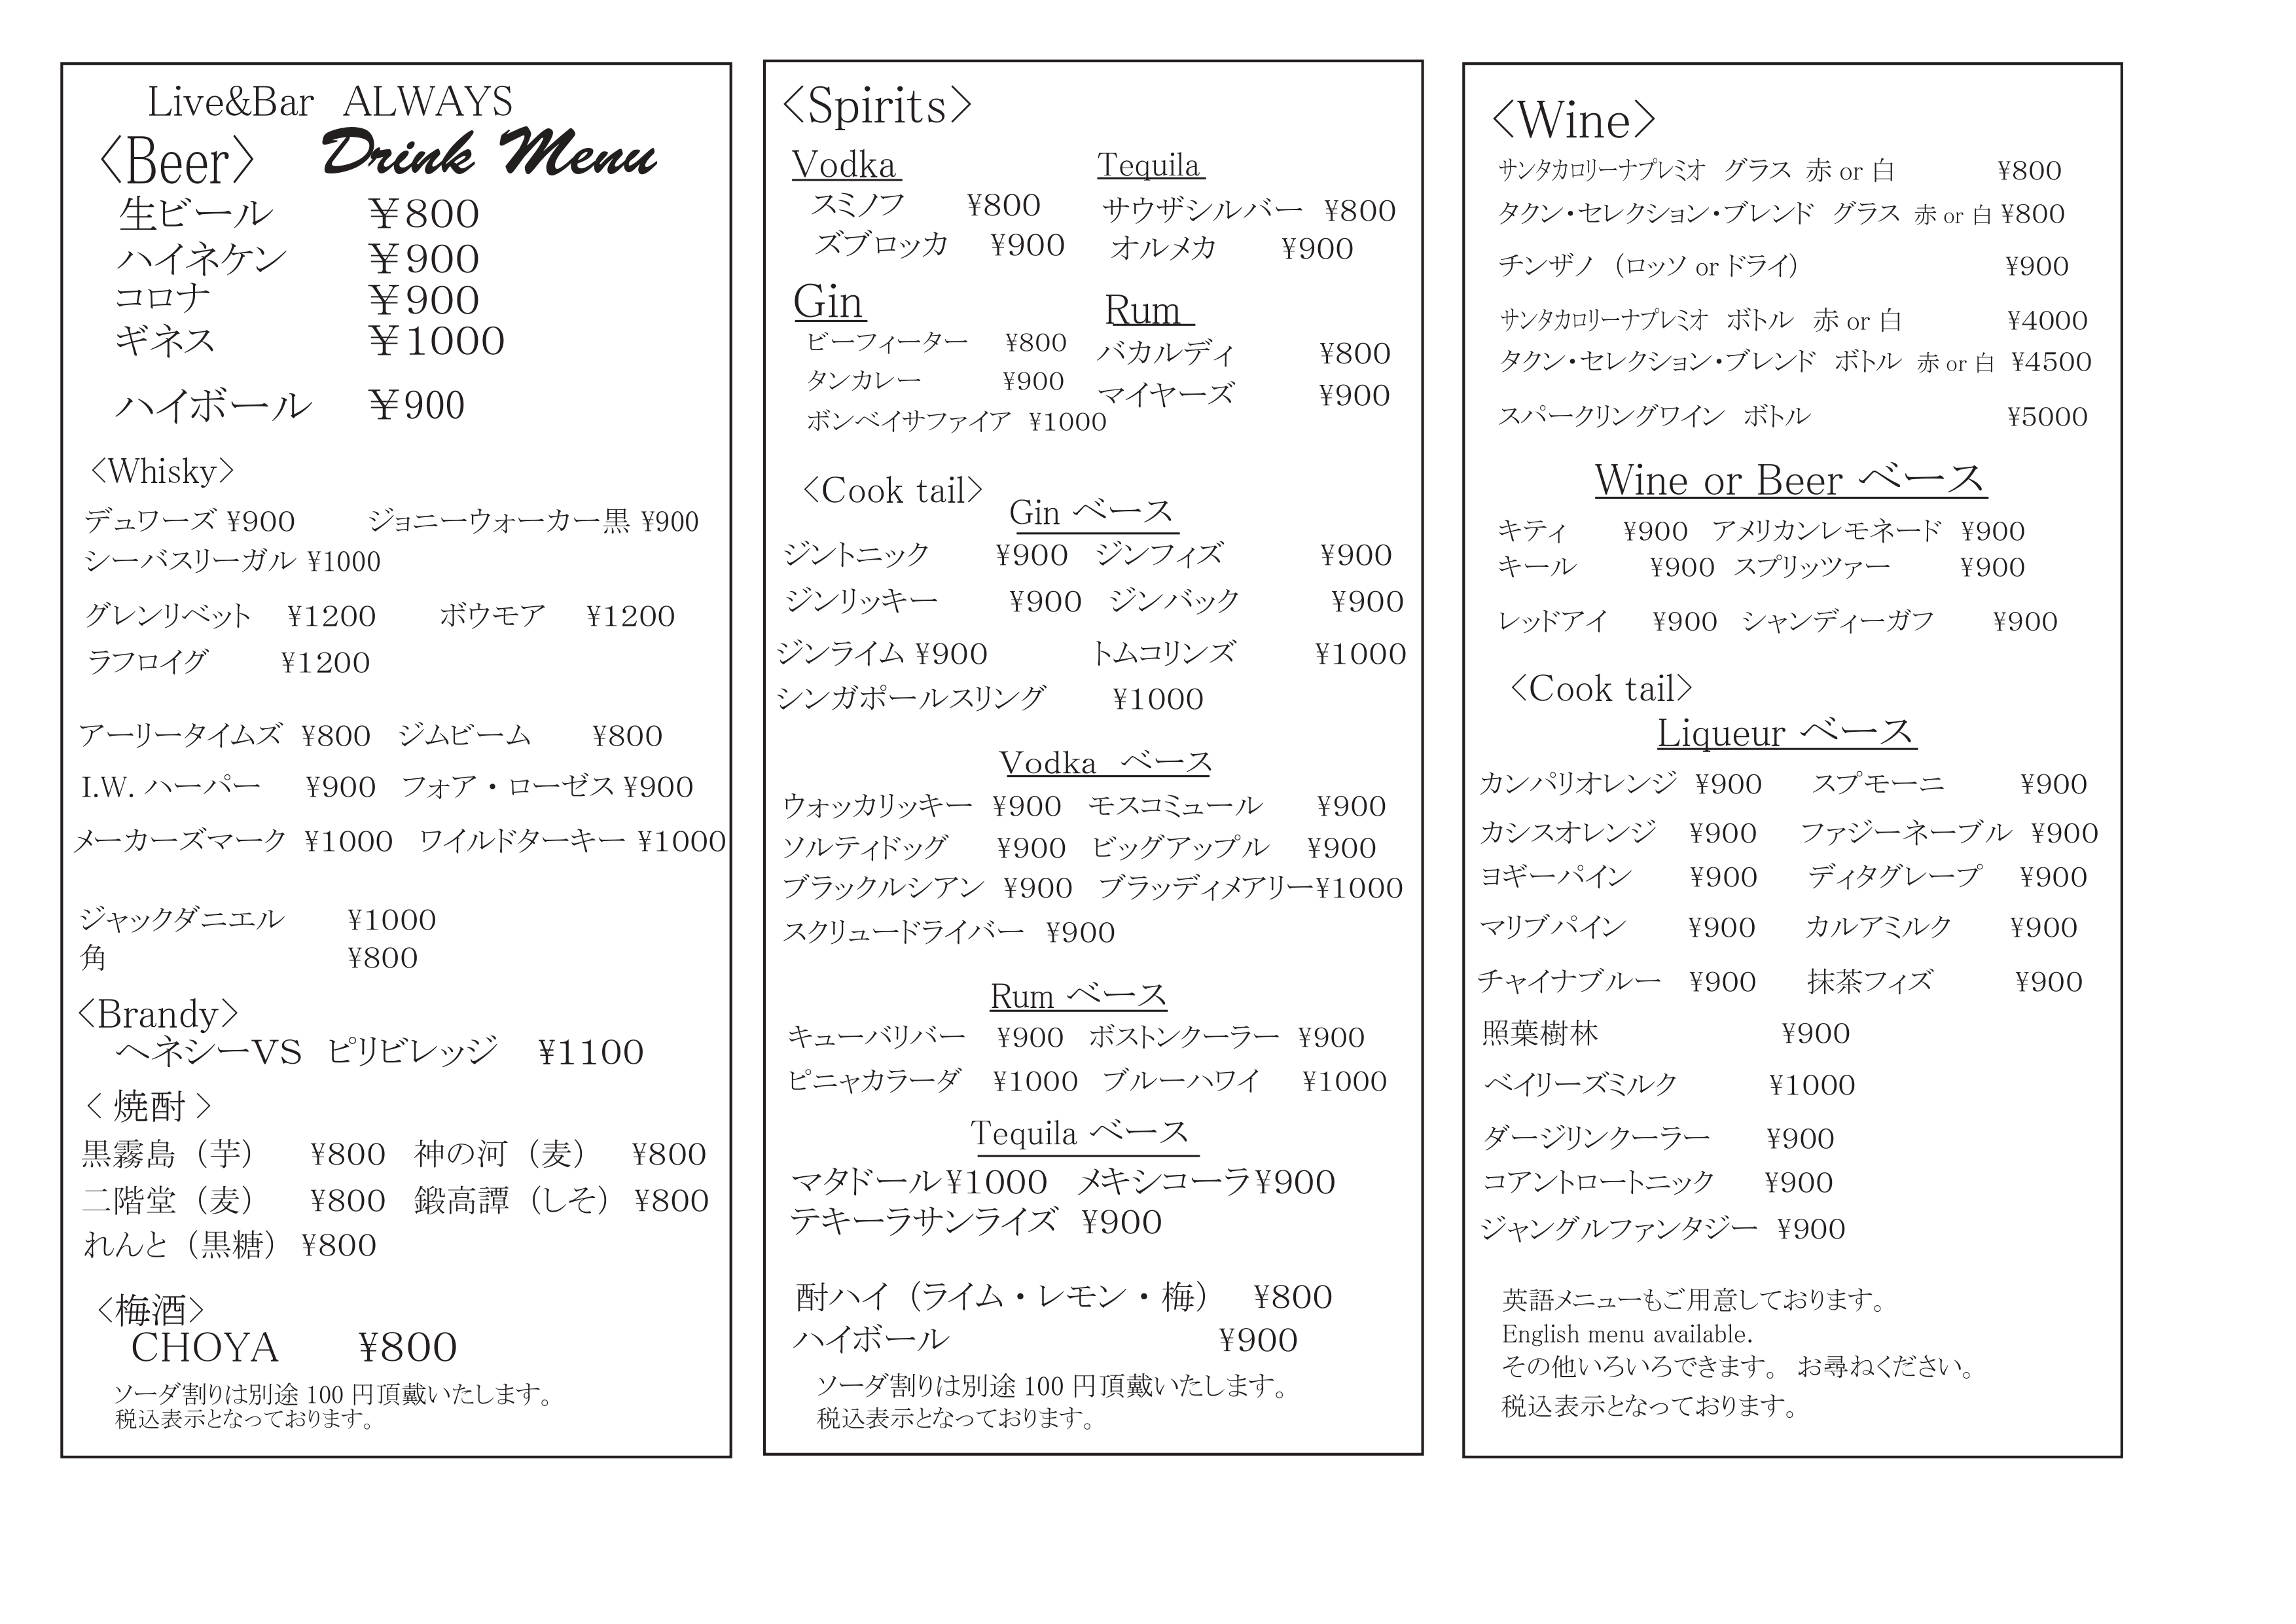 Live&Bar ALWAYS
Drink Menu
<Beer>
生ビール ￥800
ハイネケン ￥900
コロナ ￥900
ギネス ￥1000
ハイボール ￥900
<Whisky>
デュワーズ ¥900 ジョニーウォーカー黒 ¥900
シーバスリーガル ¥1000
グレンリベット ¥1200 ボウモア ¥1200
ラフロイグ ¥1200
アーリータイムズ ¥800 ジムビーム ¥800
I.W. ハーパー ¥900 フォア・ローゼス ¥900
メーカーズマーク ¥1000 ワイルドターキー ¥1000
ジャックダニエル ¥1000
角 ¥800
<Brandy>
ヘネシーVS ピリビレッジ ¥1100
< 焼酎 >
黒霧島（芋） ¥800 神の河（麦） ¥800
二階堂（麦） ¥800 鍛高譚（しそ） ¥800
れんと（黒糖） ¥800
<梅酒>
CHOYA ¥800
ソーダ割りは別途 100 円頂戴いたします。
税込表示となっております。
<Spirits>
Vodka Tequila
スミノフ ¥800 サウザシルバー ¥800
ズブロッカ ¥900 オルメカ ¥900
Gin Rum
ビーフィーター ¥800 バカルディ ¥800
タンカレー ¥900 マイヤーズ ¥900
ボンベイサファイア ¥1000
<Cook tail>
Gin ベース
ジントニック ¥900 ジンフィズ ¥900
ジンリッキー ¥900 ジンバック ¥900
ジンライム ¥900 トムコリンズ ¥1000
シンガポールスリング ¥1000
Vodka ベース
ウォッカリッキー ¥900 モスコミュール ¥900
ソルティドッグ ¥900 ビッグアップル ¥900
ブラックルシアン ¥900 ブラッディメアリー¥1000
スクリュードライバー ¥900
Rum ベース
キューバリバー ¥900 ボストンクーラー ¥900
ピニャカラーダ ¥1000 ブルーハワイ ¥1000
Tequila ベース
マタドール¥1000 メキシコーラ¥900
テキーラサンライズ ¥900
酎ハイ（ライム・レモン・梅） ¥800
ハイボール ¥900
ソーダ割りは別途 100 円頂戴いたします。
税込表示となっております。
<Wine>
サンタカロリーナプレミオ グラス 赤 or 白 ¥800
タクン・セレクション・ブレンド グラス 赤 or 白 ¥800
チンザノ（ロッソ or ドライ） ¥900
サンタカロリーナプレミオ ボトル 赤 or 白 ¥4000
タクン・セレクション・ブレンド ボトル 赤 or 白 ¥4500
スパークリングワイン ボトル ¥5000
Wine or Beer ベース
キティ ¥900 アメリカンレモネード ¥900
キール ¥900 スプリッツァー ¥900
レッドアイ ¥900 シャンディーガフ ¥900
<Cook tail>
Liqueur ベース
カンパリオレンジ ¥900 スプモーニ ¥900
カシスオレンジ ¥900 ファジーネーブル ¥900
ヨギーパイン ¥900 ディタグレープ ¥900
マリブパイン ¥900 カルアミルク ¥900
チャイナブルー ¥900 抹茶フィズ ¥900
照葉樹林 ¥900
ベイリーズミルク ¥1000
ダージリンクーラー ¥900
コアントロートニック ¥900
ジャングルファンタジー ¥900
英語メニューもご用意しております。
English menu available.
その他いろいろできます。 お尋ねください。
税込表示となっております。